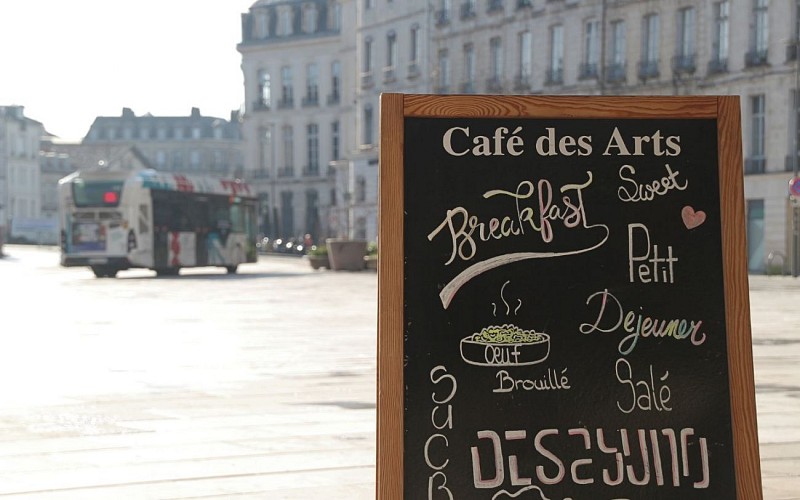 Café des Arts
Breakfast
Sweet
Petit
Dejeuner
Oeuf
Brouillé
Salé
SUCR
DESAYUNO